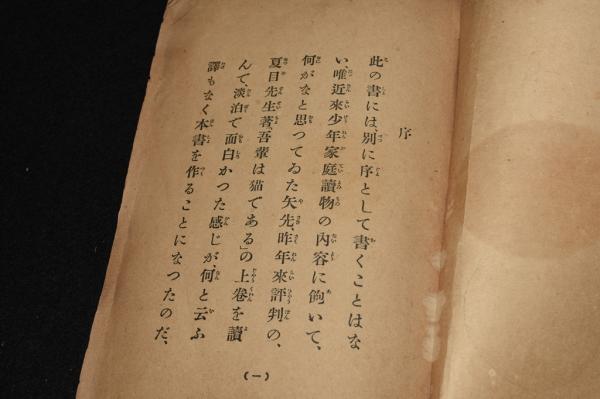 序
此の書には、別に序として書くことはな
い、唯近來少年家庭讀物の內容に飽いて、
何がなと思つてゐた矢先、昨年來評判の、
夏目先生著、吾輩は猫である」の上卷を讀
んで、淡泊で面白かつた感じが、何と云ふ
譯もなく本書を作ることになつたのだ、
(一)